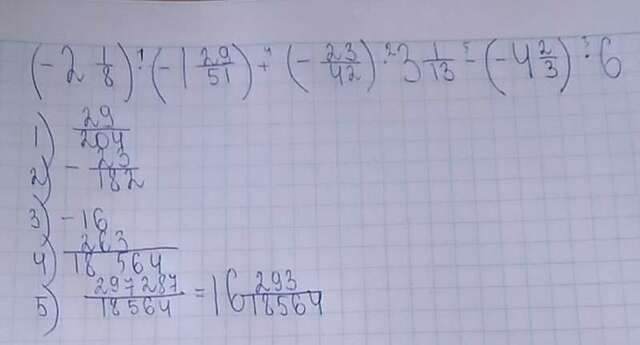 (-2 1/8) : (-1 29/51) + (- 23/42) : 3 1/13 - (-4 2/3) : 6
1) 29/204
2) - 23/182
3) -16
4) 263/18 564
5) 297 287/18564 = 16 293/18564